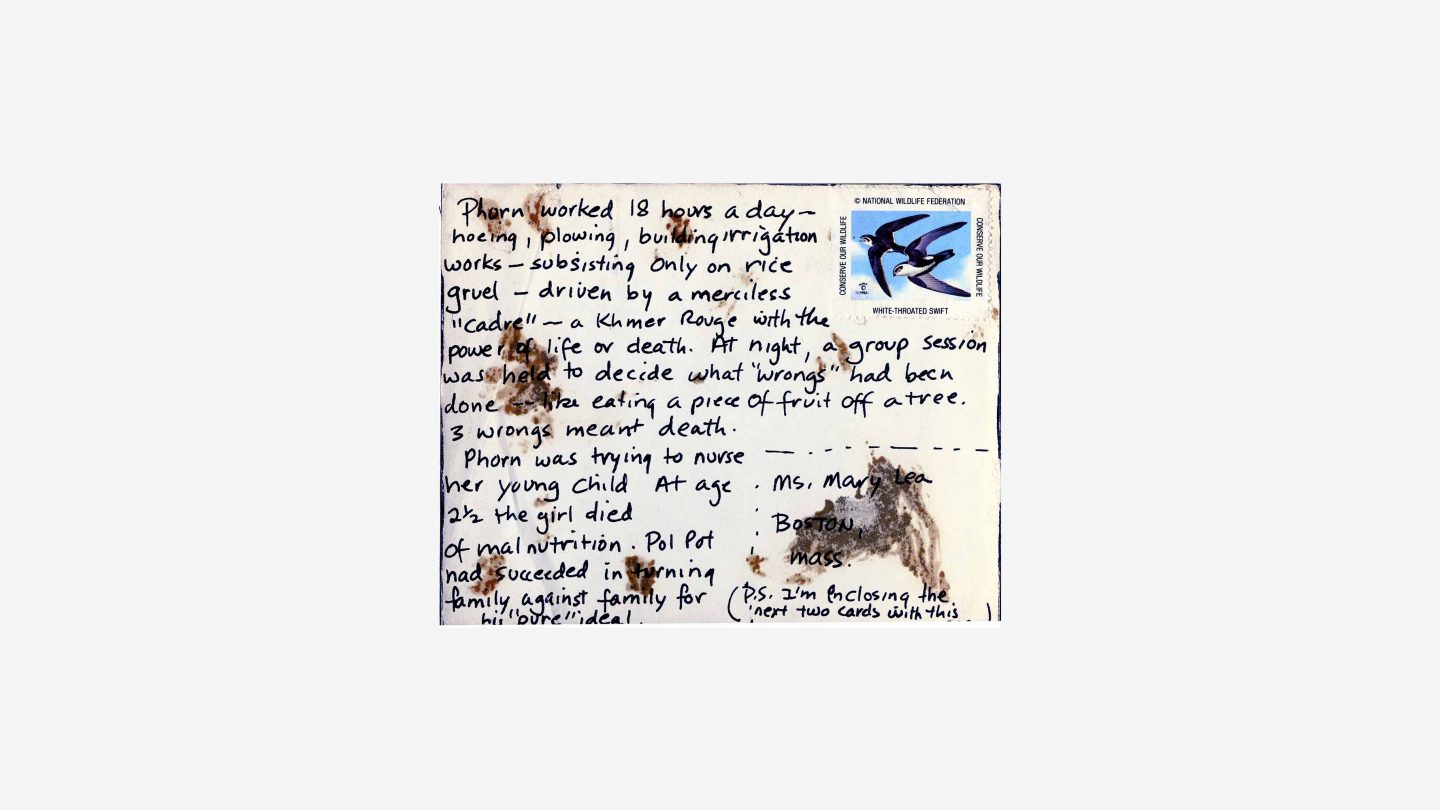 Phorn worked 18 hours a day —
hoeing, plowing, building irrigation
works — subsisting only on rice
gruel — driven by a merciless
"cadre" — a Khmer Rouge with the
power of life or death. At night, a group session
was held to decide what "wrongs" had been
done -- like eating a piece of fruit off a tree.
3 wrongs meant death.
Phorn was trying to nurse
her young child At age
2½ the girl died
of malnutrition. Pol Pot
had succeeded in turning
family against family for
his "pure" ideal.
© NATIONAL WILDLIFE FEDERATION
CONSERVE OUR WILDLIFE
CONSERVE OUR WILDLIFE
WHITE-THROATED SWIFT
Ms. Mary Lea
Boston,
Mass.
(P.S. I'm enclosing the
next two cards with this)